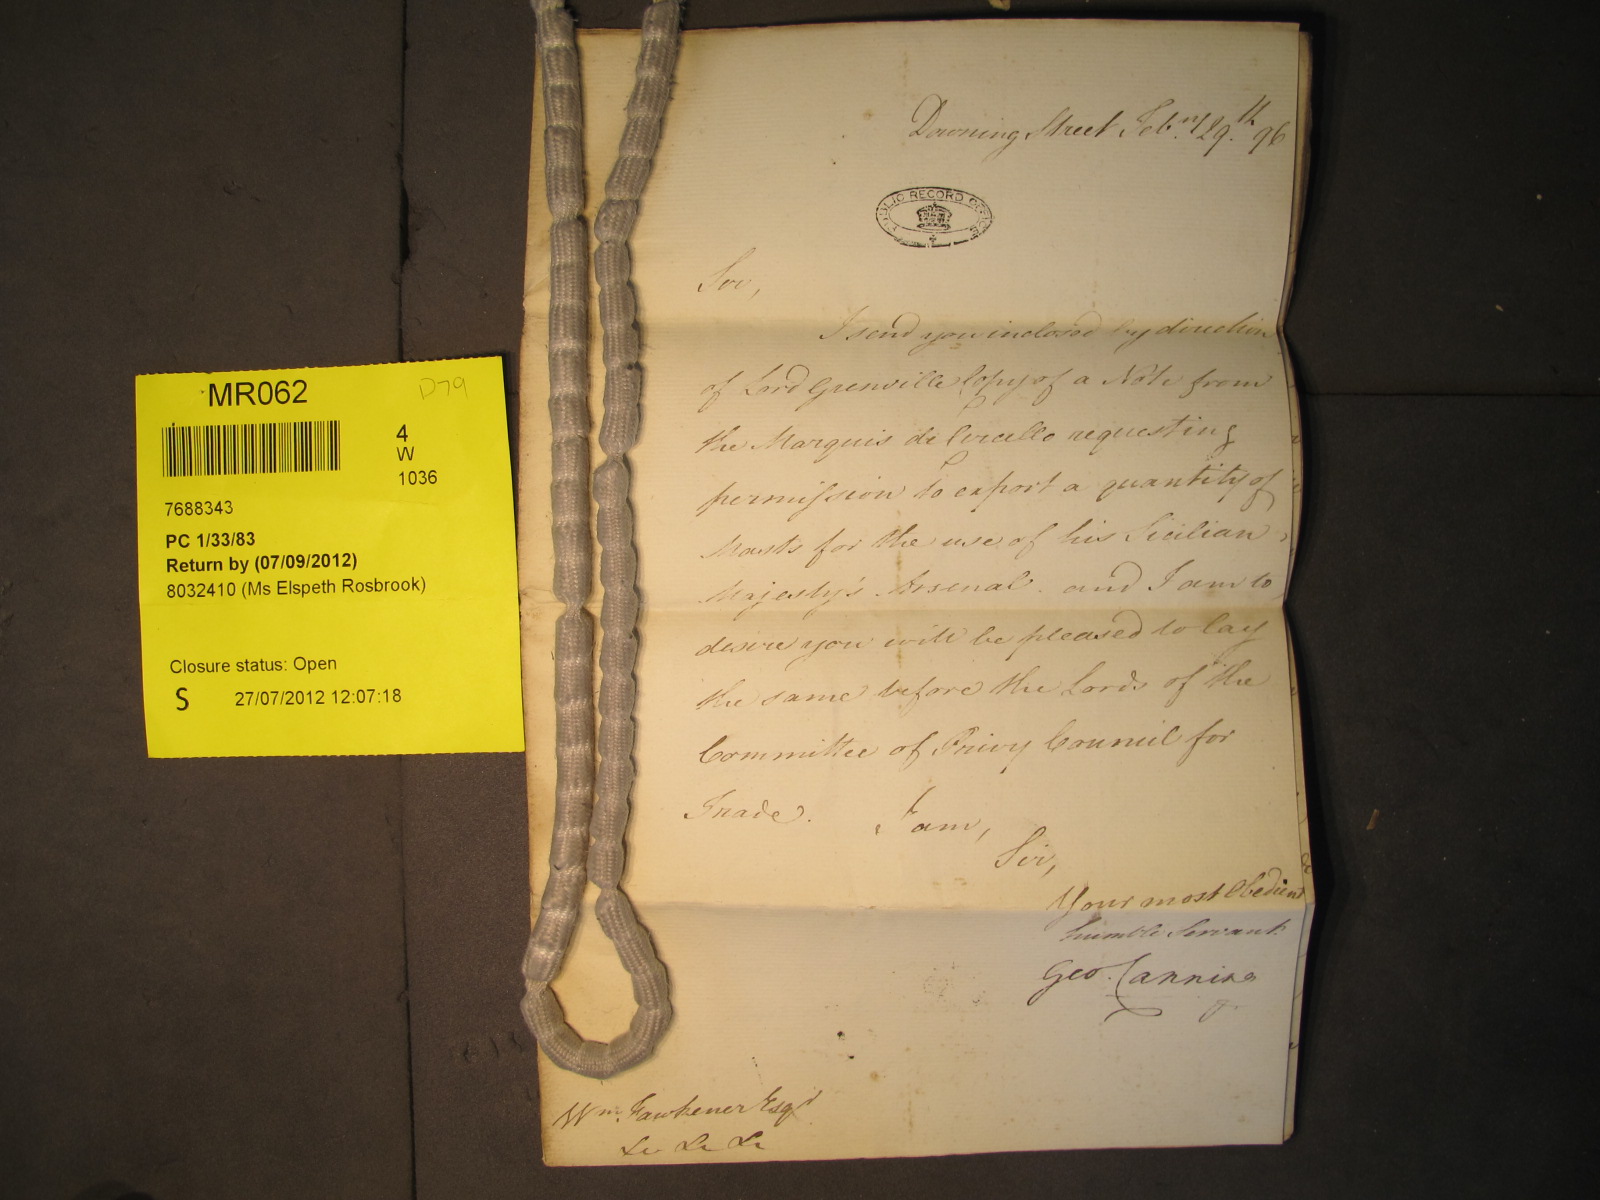 MR062
D79
4
W
1036
7688343
PC 1/33/83
Return by (07/09/2012)
8032410 (Ms Elspeth Rosbrook)
Closure status: Open
S 27/07/2012 12:07:18
Downing Street Feb.ry 29.th 96
PUBLIC RECORD OFFICE
Sir,
I send you inclosed by direction
of Lord Grenville Copy of a Note from
the Marquis de Circello requesting
permission to export a quantity of
Masts for the use of his Sicilian
Majesty's Arsenal. and I am to
desire you will be pleased to lay
the same before the Lords of the
Committee of Privy Council for
Trade. I am,
Sir,
Your most Obedient
humble Servant
Geo. Canning
Wm. Fawkener Esqr
&c &c &c